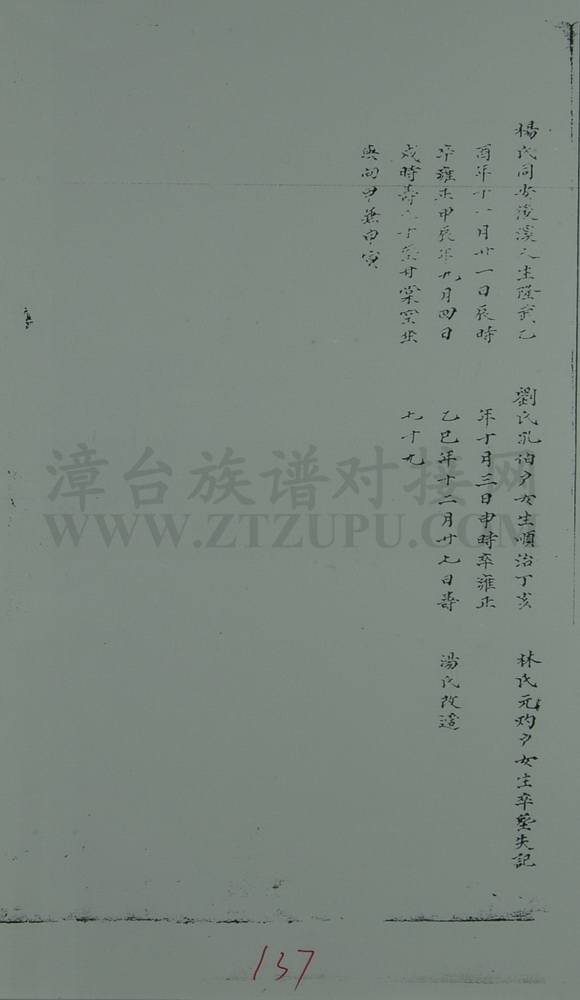 楊氏同安後溪人生隆武乙
酉年十一月廿一日辰時
卒雍正甲辰年九月四日
戌時壽八十塟甘棠窑坐
庚向甲兼申寅
劉氏孔伯户女生順治丁亥
年十月三日申時卒雍正
乙巳年十二月廿七日壽
七十九
林氏元灼户女生卒塟失記
湯氏改適
漳台族谱对接网
WWW.ZTZUPU.COM
137